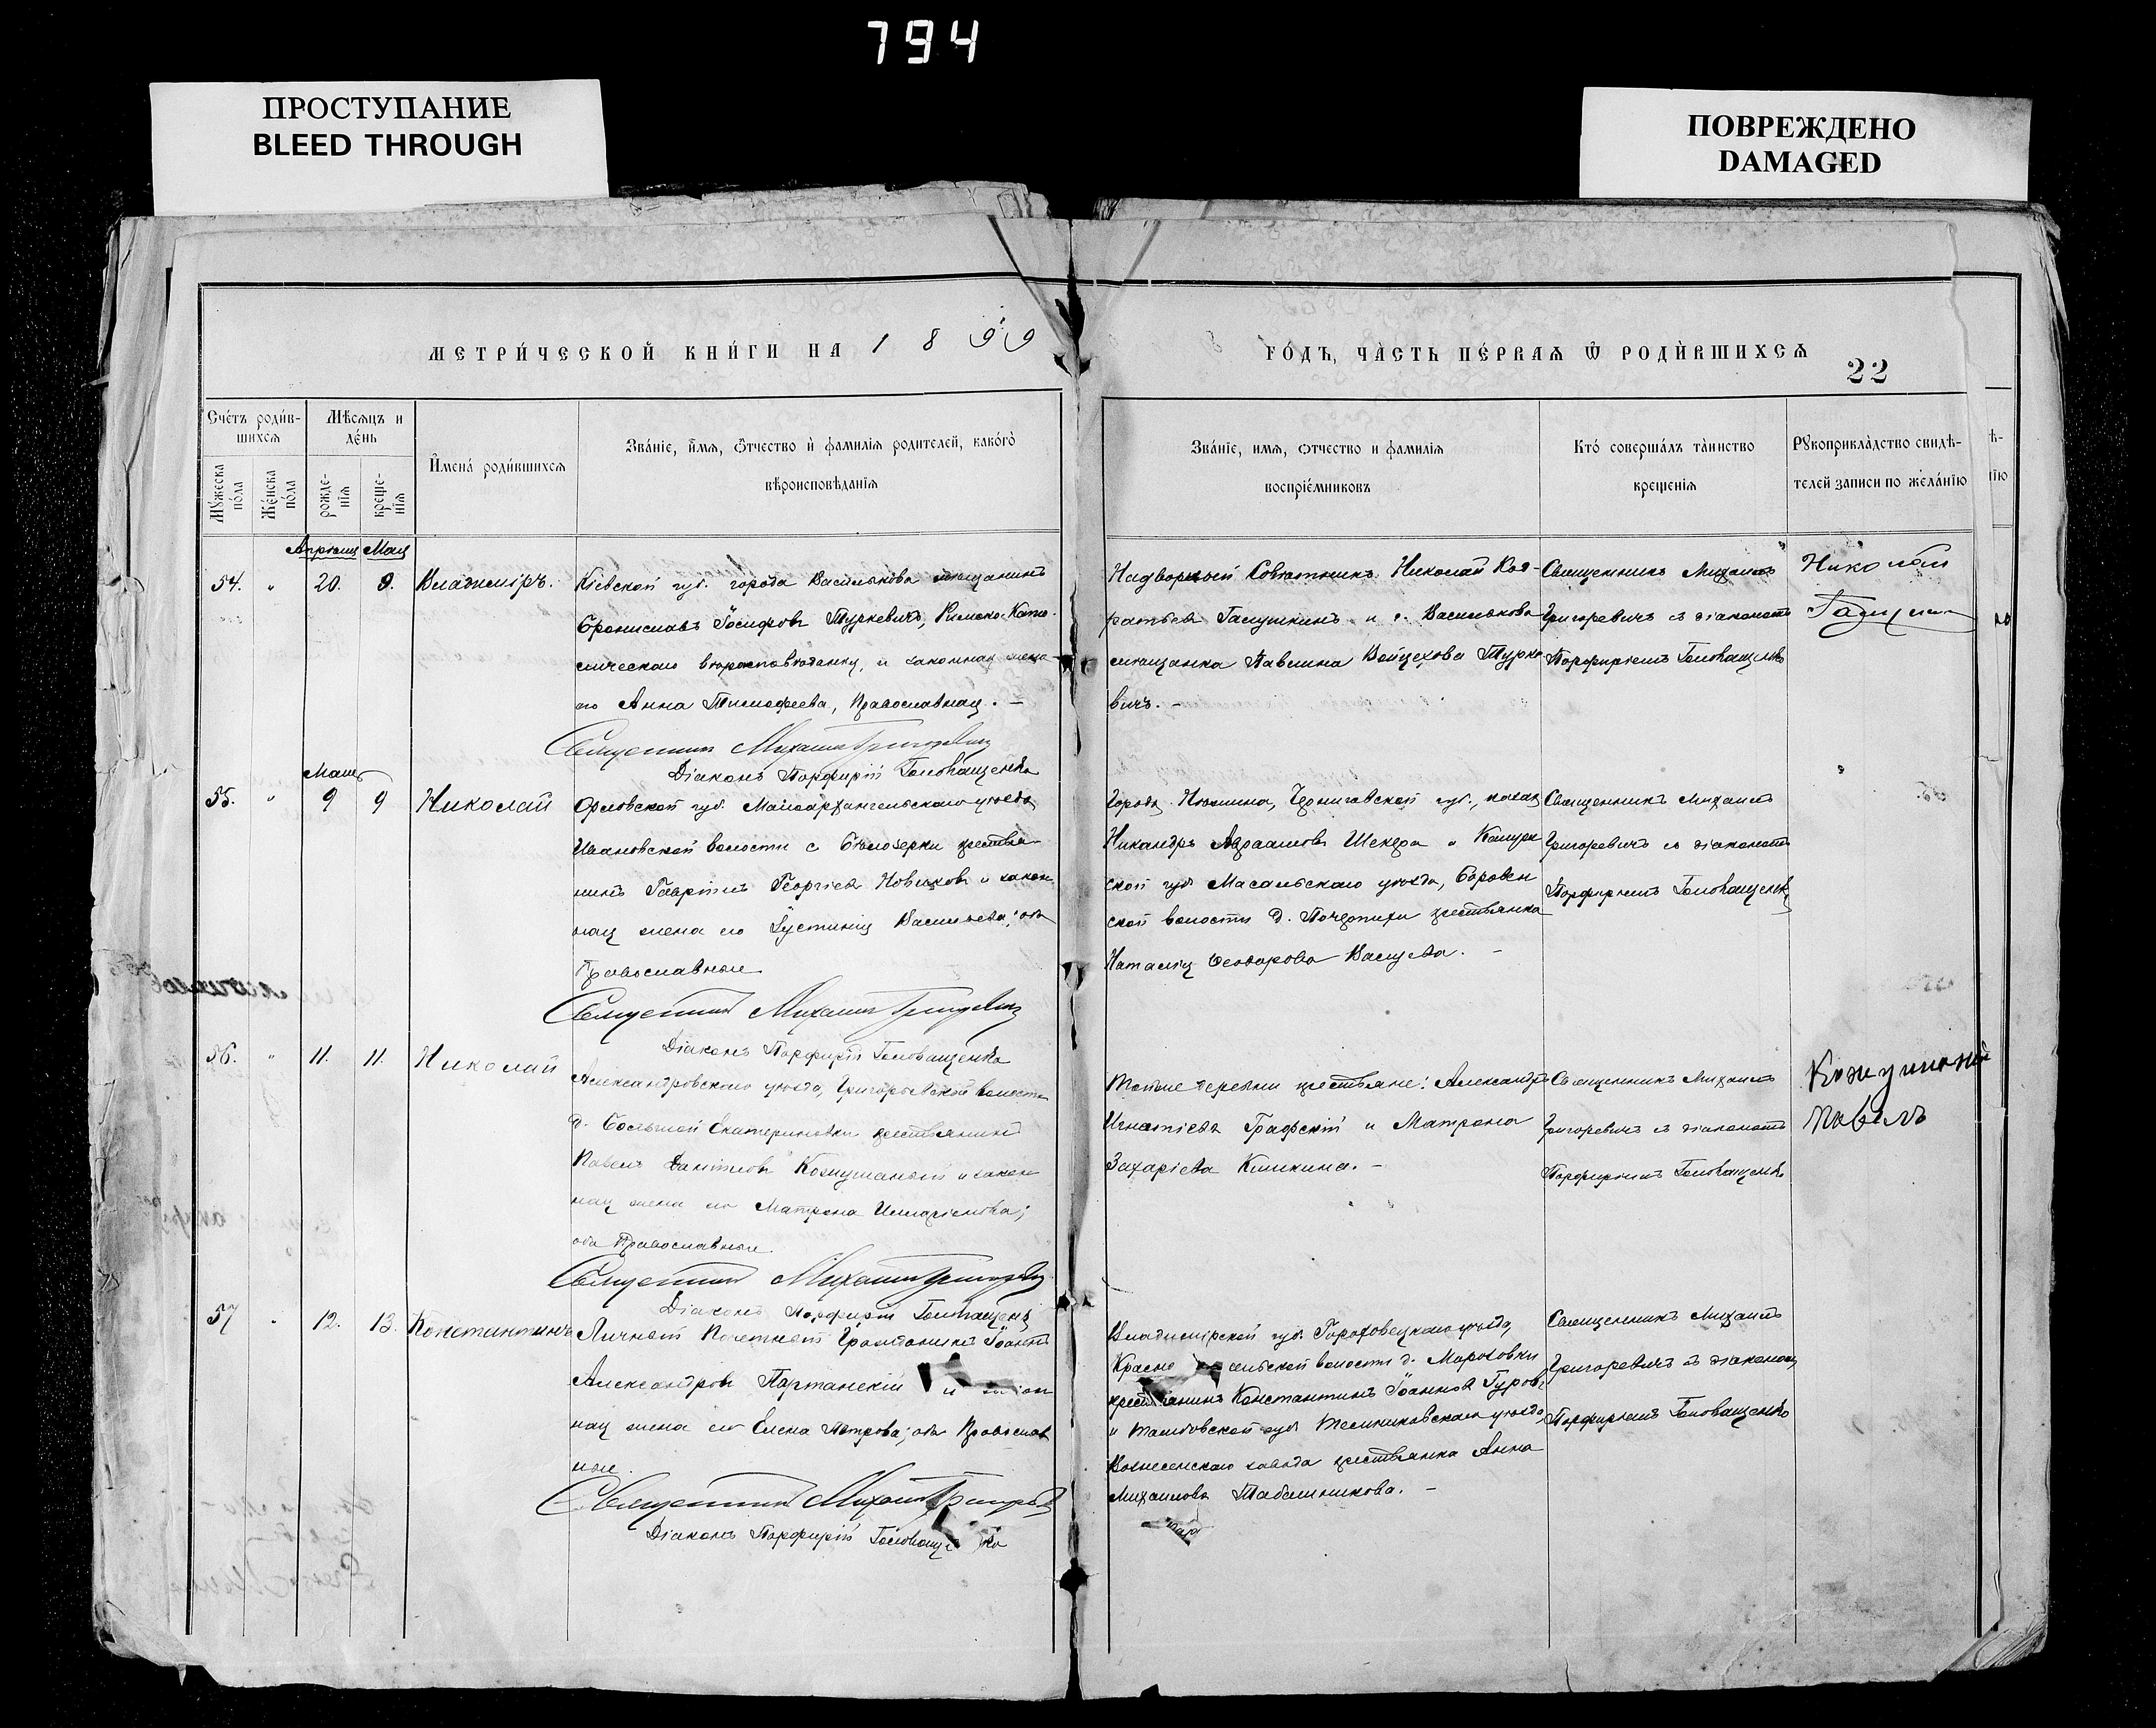 794
ПРОСТУПАНИЕ
BLEED THROUGH
ПОВРЕЖДЕНО
DAMAGED
МЕТРИ́ЧЕСКОЙ КНИ́ГИ НА 1899
ГО́ДЪ, ЧА́СТЬ ПЕ́РВАѦ Ѿ РОДИ́ВШИХСѦ
22
Сче́тъ роди́в-
шихсѧ
Мꙋ́жеска по́ла
Же́нска по́ла
Мѣ́сѧцъ и
де́нь
рожде-
нїѧ
креще-
нїѧ
Имена̀ роди́вшихсѧ
Зва́нїе, и́мѧ, ѻ́тчество и̂ фамилїѧ родителей, како́гѡ
вѣроисповѣ́данїѧ
Зва́нїе, имѧ, ѻтчество и фамилїѧ
воспрїе́мниковъ
Кто́ соверша́лъ та́инство
креще́нїѧ
Рꙋкоприкла́дство свидѣ́-
телей записи по жела́нїю
Апрѣля Мая
54. " 20. 9. Владиміръ.
Кіевской губ. города Василькова мѣщанинъ
Брониславъ Іосифовъ Туркевичъ, Римско-Като-
лическаго вѣроисповѣданія, и законная жена
его Анна Тимофеева, Православная. –
Священник Михаил Григоревич
Діаконъ Порфирій Головащенко
Надворный Совѣтникъ Николай Кон-
ратьев Галушкинъ и г. Василькова
мѣщанка Павлина Войцехова Турке-
вичъ. –
Священникъ Михаилъ
Григоревичъ съ діакономъ
Порфиріемъ Головащенко
Николай
Галушкин
Маія
55. " 9 9 Николай
Орловской губ. Малоархангельскаго уѣзда
Ивановской волости с. Бѣлозерки крестья-
нинъ Гавріилъ Георгіевъ Новиковъ и закон-
ная жена его Іустинія Васильева; оба
Православные
Священник Михаил Григоревич
Діаконъ Порфирій Головащенко
Города Нѣжина, Черниговской губ., казак
Никандръ Авраамовъ Шекера и Калуж
ской губ. Масальскаго уѣзда, Боровен
ской волости д. крестьянка
Наталія Ѳеодорова –
Священникъ Михаилъ
Григоревичъ съ діакономъ
Порфиріемъ Головащенко
56. " 11. 11. Николай
Александровскаго уѣзда, Григорьевской волости
д. Большой Екатериновки крестьянинъ
Павелъ Даніиловъ Кожушаный и закон
ная жена его Матрона
оба Православные.
Священник Михаил Григоревич
Діаконъ Порфирій Головащенко
Тойже деревни крестьяне: Александръ
Игнатіевъ Графскій и Матрона
Захаріева Кишкина. –
Священникъ Михаилъ
Григоревичъ съ діакономъ
Порфиріемъ Головащенко
Кожушний
Павелъ
57 " 12. 13. Константинъ
Личный Почетный Гражданинъ Іоаннъ
Александровъ Партанскій и закон
ная жена его Елена Петрова; оба Православ
ные.
Священник Михаил Григоревич
Діаконъ Порфирій Головаще ко
Владимірской губ. Гороховецкаго уѣзда,
Красно сельской волости д. Мороховки
крестьянинъ Константинъ Іоанновъ Гуровъ
и Тамбовской губ. Темниковскаго уѣзда,
Вознесенскаго завода крестьянка Анна
Михаилова Табальникова. –
Священникъ Михаилъ
Григоревичъ съ діакономъ
Порфиріемъ Головащенко